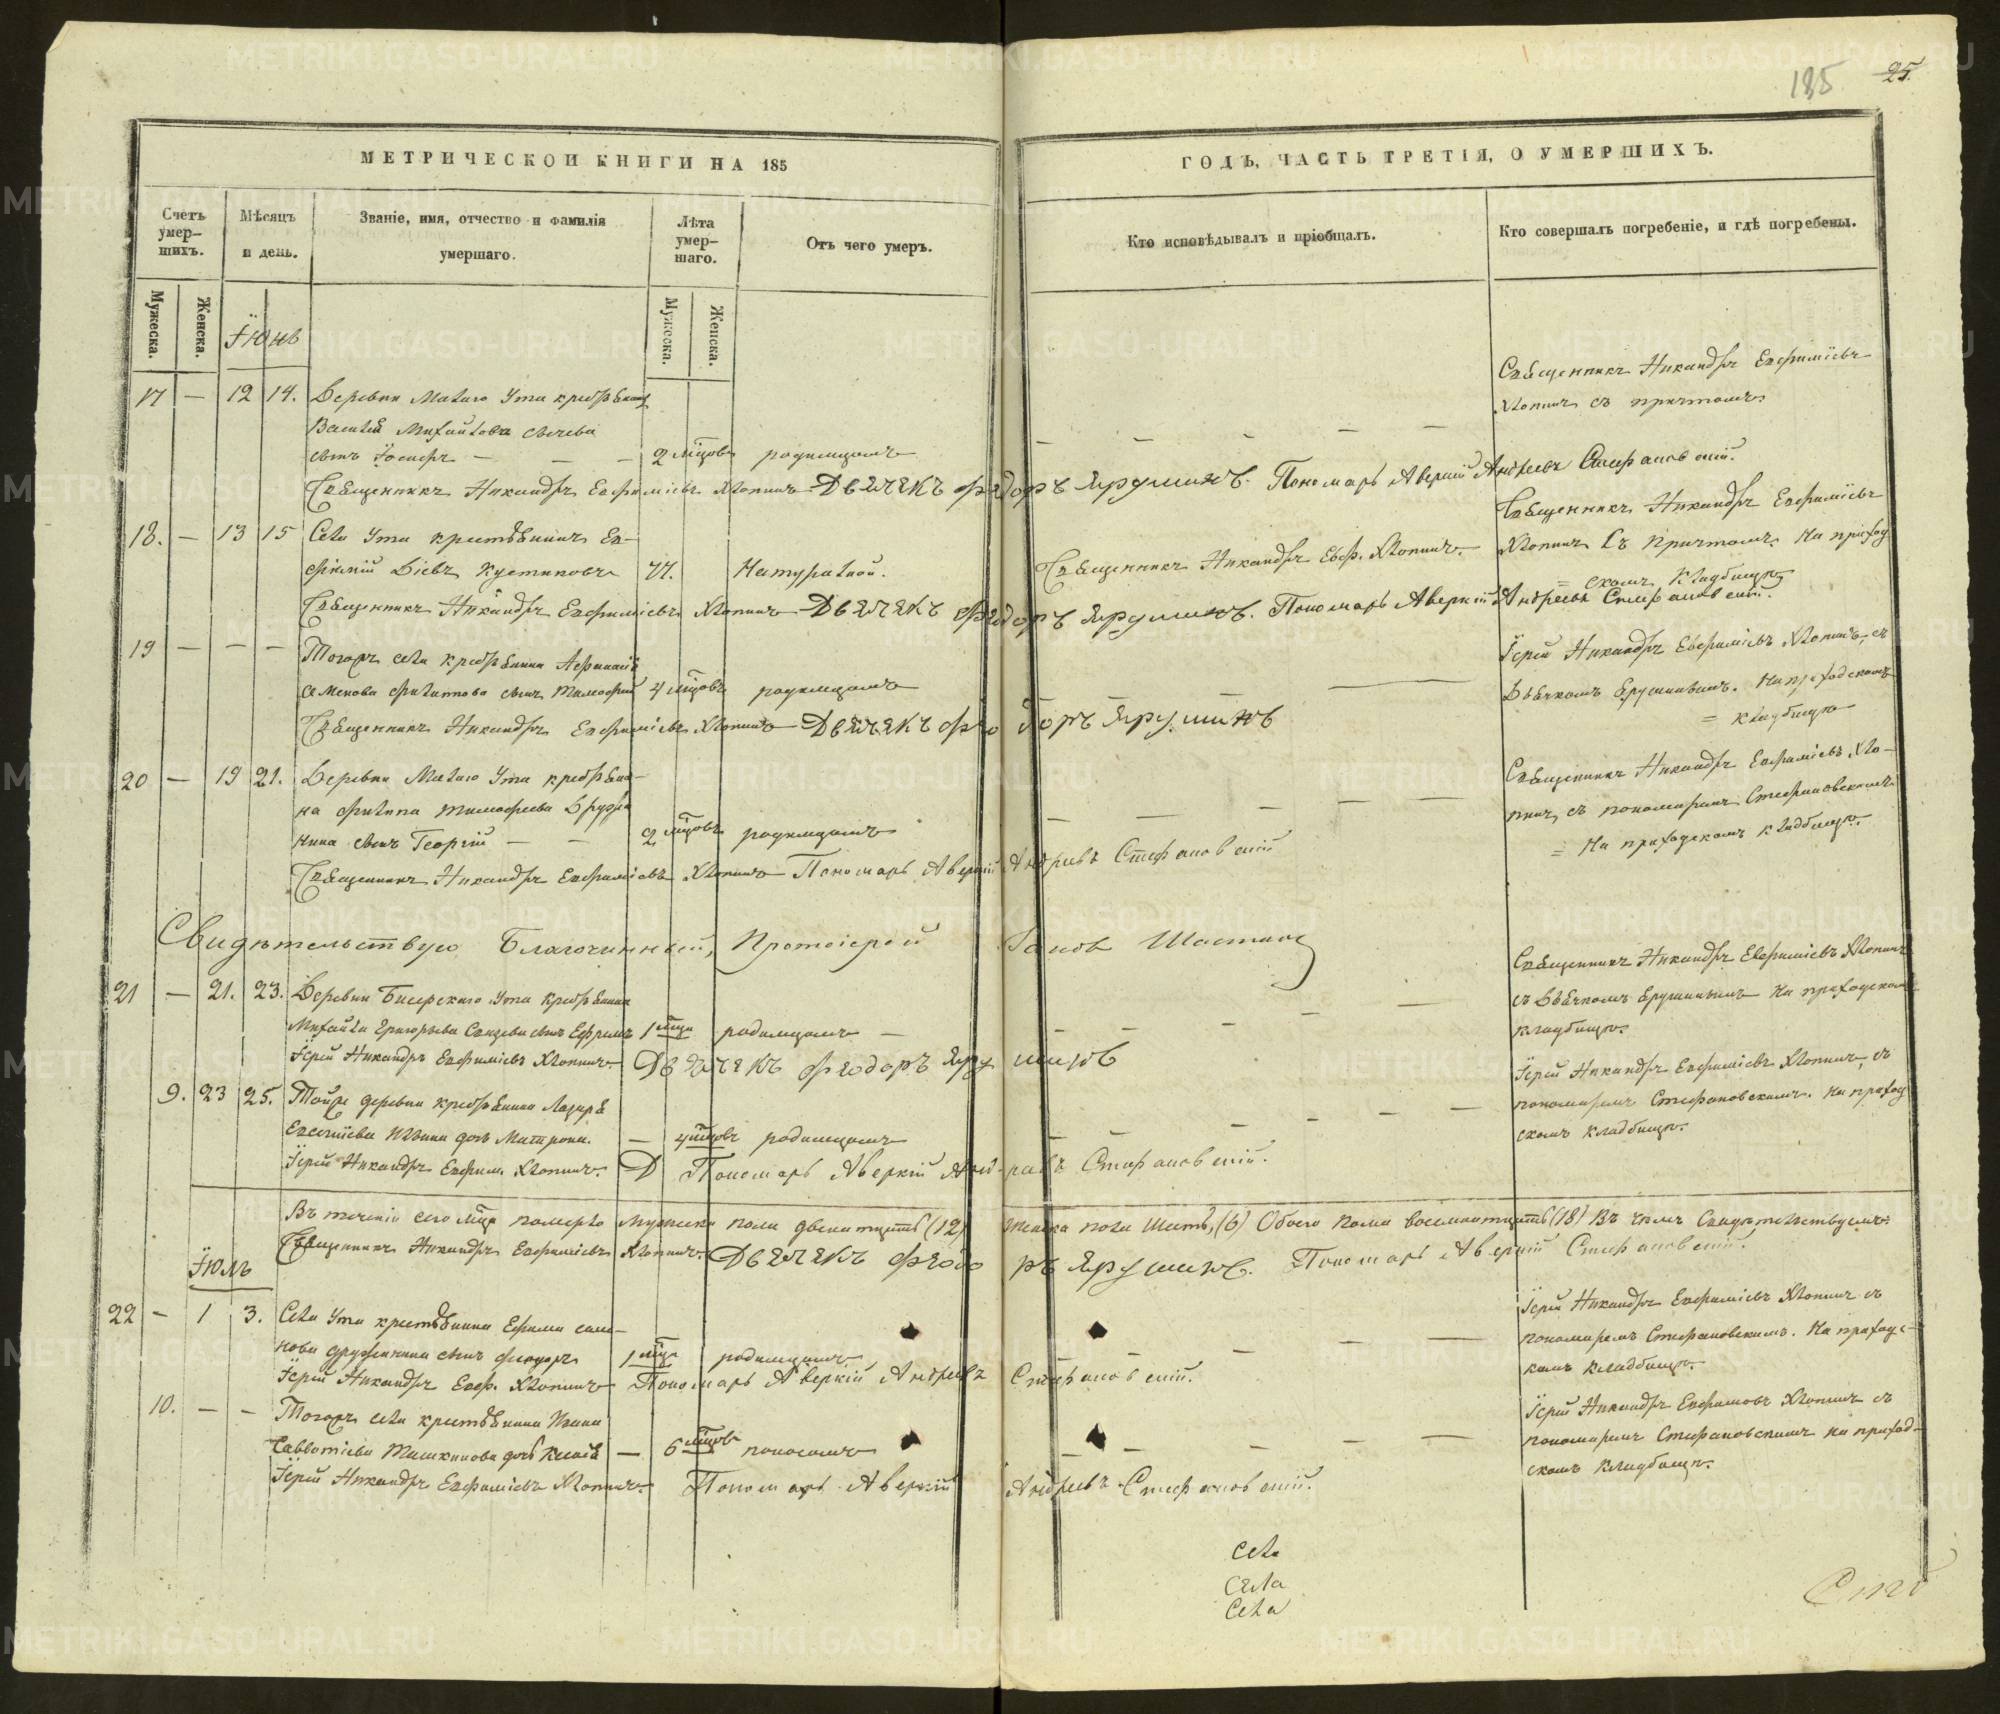 185 25.
МЕТРИЧЕСКОИ КНИГИ НА 185 ГОДЪ, ЧАСТЬ ТРЕТІЯ, О УМЕРШИХЪ.
Счетъ умер-шихъ. Мѣсяцъ и день. Званіе, имя, отчество и фамилія умершаго. Лѣта умер-шаго. Отъ чего умеръ. Кто исповѣдывалъ и пріобщалъ. Кто совершалъ погребеніе, и гдѣ погребены.
Мужеска. Женска. Мужеска. Женска.
Іюнь
17 — 12 14. Деревни Малаго Ута
Василія Михайлова
сынъ Іосифъ — — — 2 мцовъ родимцомъ — — — — —
Священникъ Никандръ Евфиміевъ Хлопинъ съ причтомъ
Священникъ Никандръ Евфиміевъ Хлопинъ Дьячекъ Феодоръ Ярушинъ. Пономарь Аверкій Андреевъ Стефановскій.
18. — 13 15 Села Ута крестьянинъ Ев-
фимій Кустиковъ 77. Натуралной. Священникъ Никандръ Евф. Хлопинъ.
Священникъ Никандръ Евфиміевъ Хлопинъ Съ Причтомъ. На приход
= скомъ кладбищѣ
Священникъ Никандръ Евфиміевъ Хлопинъ Дьячекъ Феодоръ Ярушинъ. Пономарь Аверкій Андреевъ Стефановскій.
19 — — — Тогожъ села Афанасія
Семенова Филатова сынъ Тимофей 4 мцовъ родимцомъ — — —
Іерей Никандръ Евфиміевъ Хлопинъ, съ
Дьячкомъ Ярушинымъ. На приходскомъ
= кладбищѣ
Священникъ Никандръ Евфиміевъ Хлопинъ Дьячекъ Феодоръ Ярушинъ
20 — 19 21. Деревни Малаго Ута
на Филипа Тимофеева Дружи
нина сынъ Георгій — — 2 мцовъ родимцомъ — — — — —
Священникъ Никандръ Евфиміевъ Хло-
пинъ, съ пономаремъ Стефановскимъ
= На приходскомъ кладбищѣ.
Священникъ Никандръ Евфиміевъ Хлопинъ Пономарь Аверкій Андреевъ Стефановскій
Свидѣтельствую Благочинный, Протоіерей Іаковъ
21 — 21. 23. Деревни Бисерскаго Ута
Михайла Григорьева сынъ Ефремъ 1 мца родимцомъ — — — — — —
Священникъ Никандръ Евфиміевъ Хлопинъ
съ Дьячкомъ Ярушинымъ На приходскомъ
кладбищѣ.
Іерей Никандръ Евфиміевъ Хлопинъ. Дьячекъ Феодоръ Ярушинъ
9. 23 25. Тойже деревни Лазаря
дочь Матрона. — 4 мцовъ родимцомъ — — — — — —
Іерей Никандръ Евфиміевъ Хлопинъ, съ
пономаремъ Стефановскимъ. На приход
скомъ кладбищѣ.
Іерей Никандръ Евфим. Хлопинъ. Д Пономарь Аверкій Андреевъ Стефановскій.
Въ теченіи сего мца померло мужеска пола двенатцать (12) женска пола шесть, (6) Обоего пола восемнатцать (18) Въ чемъ Свидѣтельствуемъ:
Священникъ Никандръ Евфиміевъ Хлопинъ. Дьячекъ Феодоръ Ярушинъ. Пономарь Аверкій Стефановскій.
Іюль
22 — 1 3. Села Ута крестьянина Ефима
Дружинина сынъ Феодоръ 1 мца родимцомъ — — — — —
Іерей Никандръ Евфиміевъ Хлопинъ съ
пономаремъ Стефановскимъ. На приход-
скомъ кладбищѣ.
Іерей Никандръ Евф. Хлопинъ Пономарь Аверкій Андреевъ Стефановскій.
10. — — Тогожъ села крестьянина Ивана
Савватіева — 6 мцовъ поносомъ — — — — —
Іерей Никандръ Хлопинъ съ
пономаремъ Стефановскимъ на приход-
скомъ кладбищѣ.
Іерей Никандръ Евфиміевъ Хлопинъ. Пономарь Аверкій Андреевъ Стефановскій.
Села
Села
Села
METRIKI.GASO-URAL.RU